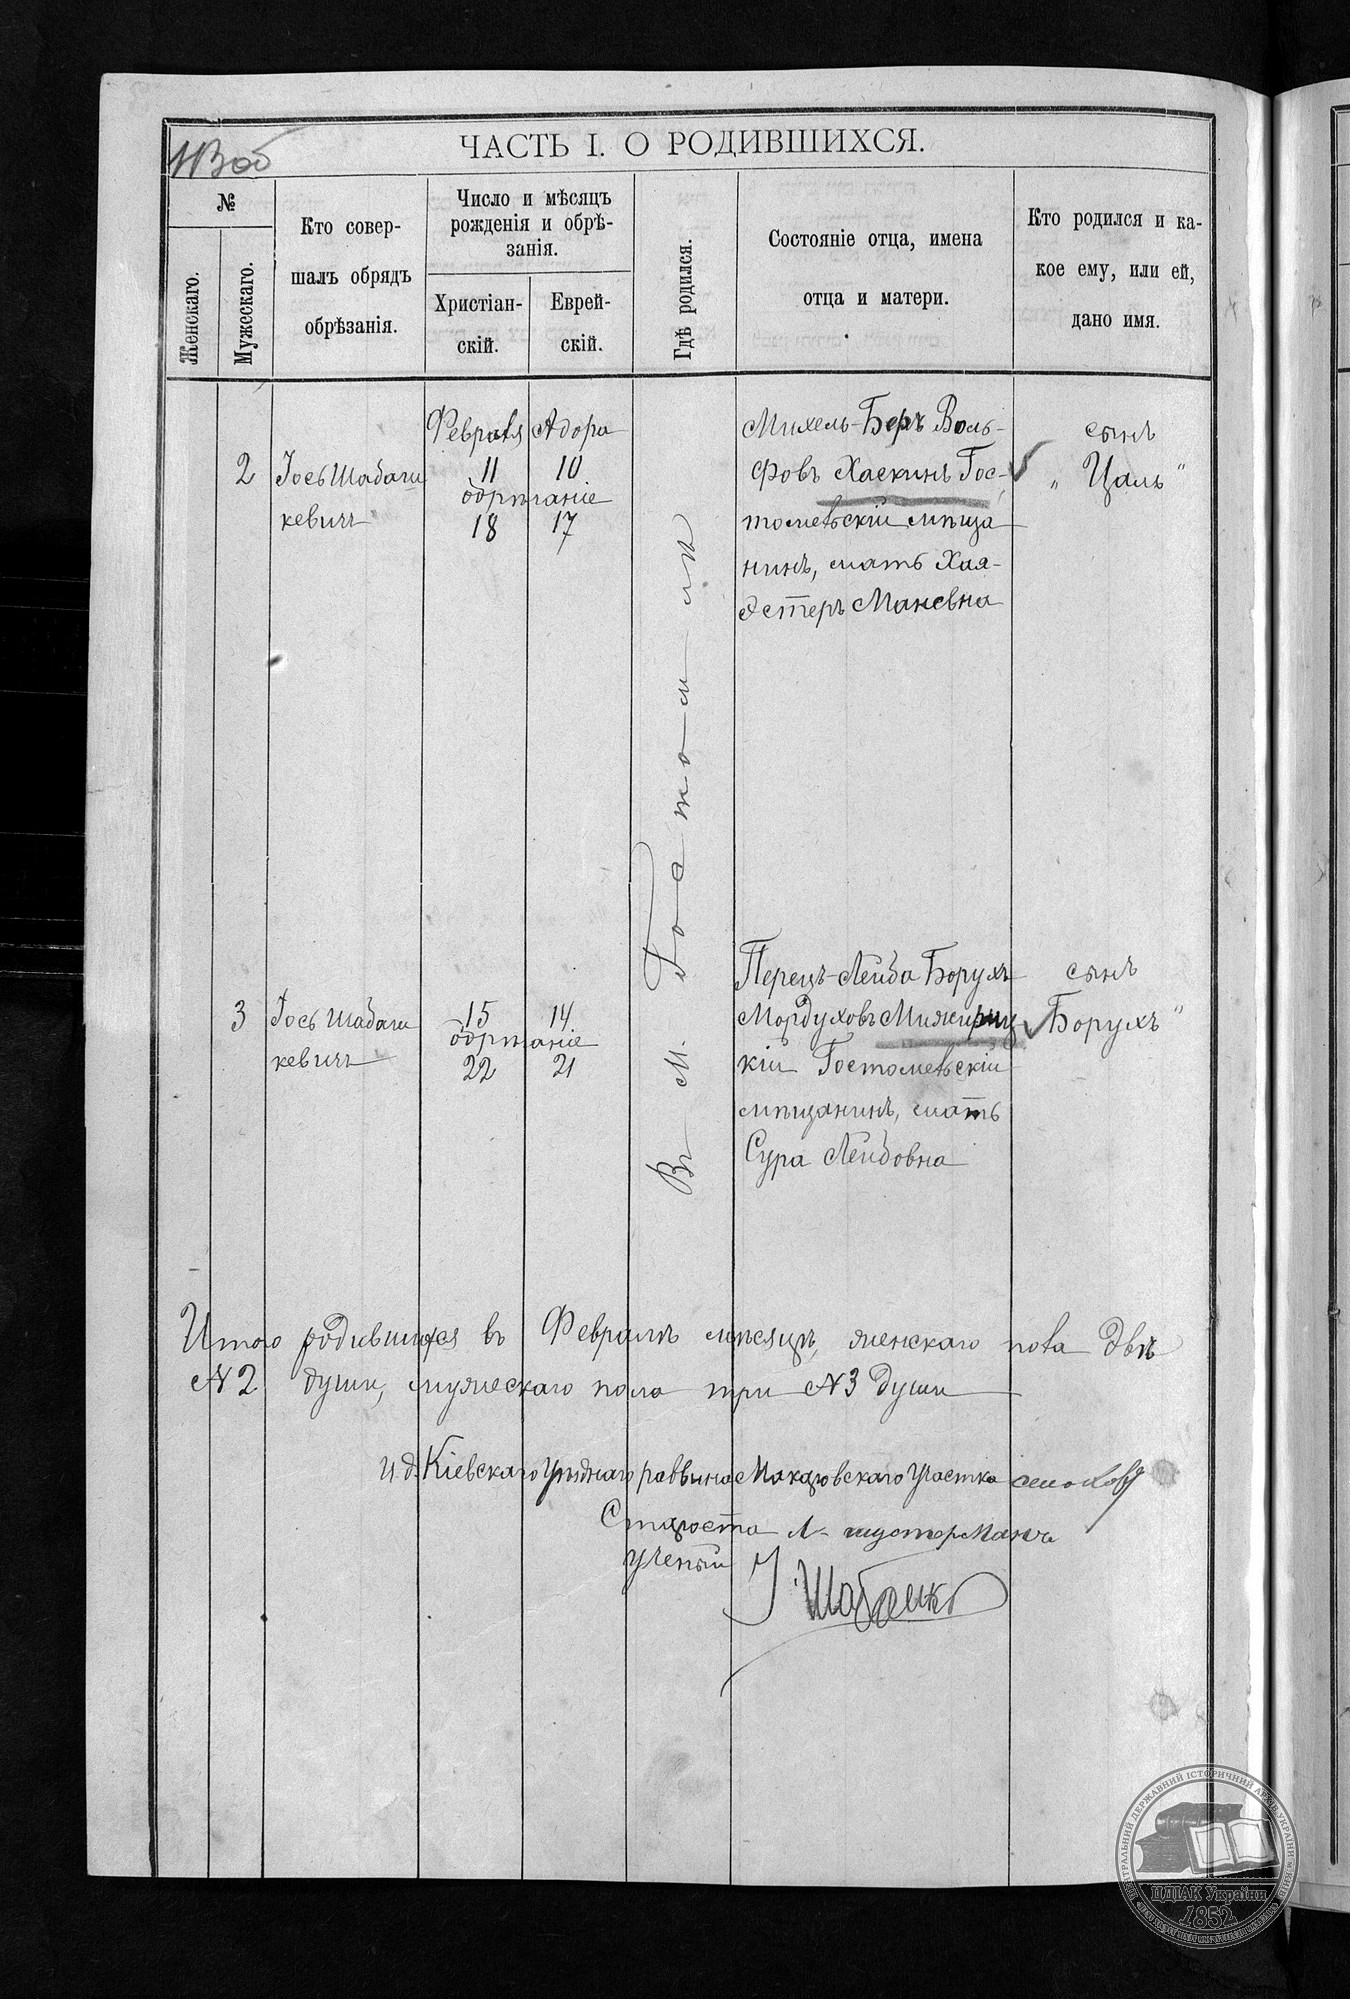 ЧАСТЬ I. О РОДИВШИХСЯ.
№
Женскаго.
Мужескаго.
Кто совер-
шалъ обрядъ
обрѣзанія.
Число и мѣсяцъ
рожденія и обрѣ-
занія.
Христіан-
скій.
Еврей-
скій.
Гдѣ родился.
Состояніе отца, имена
отца и матери.
Кто родился и ка-
кое ему, или ей,
дано имя.
Февраля Адора
2 Іось Шабаш
кевичъ
11 10
обрѣзаніе
18 17
Въ М. Гостомлѣ
Михель-Беръ Воль-
фовъ Хаскинъ Гос-
томельскій мѣща
нинъ, мать Хая-
Эстеръ Маневна
сынъ
„Цаль"
3 Іось Шабаш
кевичъ
15 14
обрѣзаніе
22 21
Перецъ-Лейба Борухъ
Мордуховъ Межириц
кій Гостомельскій
мѣщанинъ, мать
Сура Лейбовна
сынъ
Борухъ"
Итого родившихся въ Февралѣ мѣсяцѣ, женскаго пола двѣ
№2 души, мужескаго пола три №3 души
И.д. Кіевскаго Уѣзднаго раввина Макаровскаго Участка
Староста Л. Шустерманъ
Ученый
ЦЕНТРАЛЬНИЙ ДЕРЖАВНИЙ ІСТОРИЧНИЙ АРХІВ УКРАЇНИ м.КИЇВ
ЦДІАК України
1852